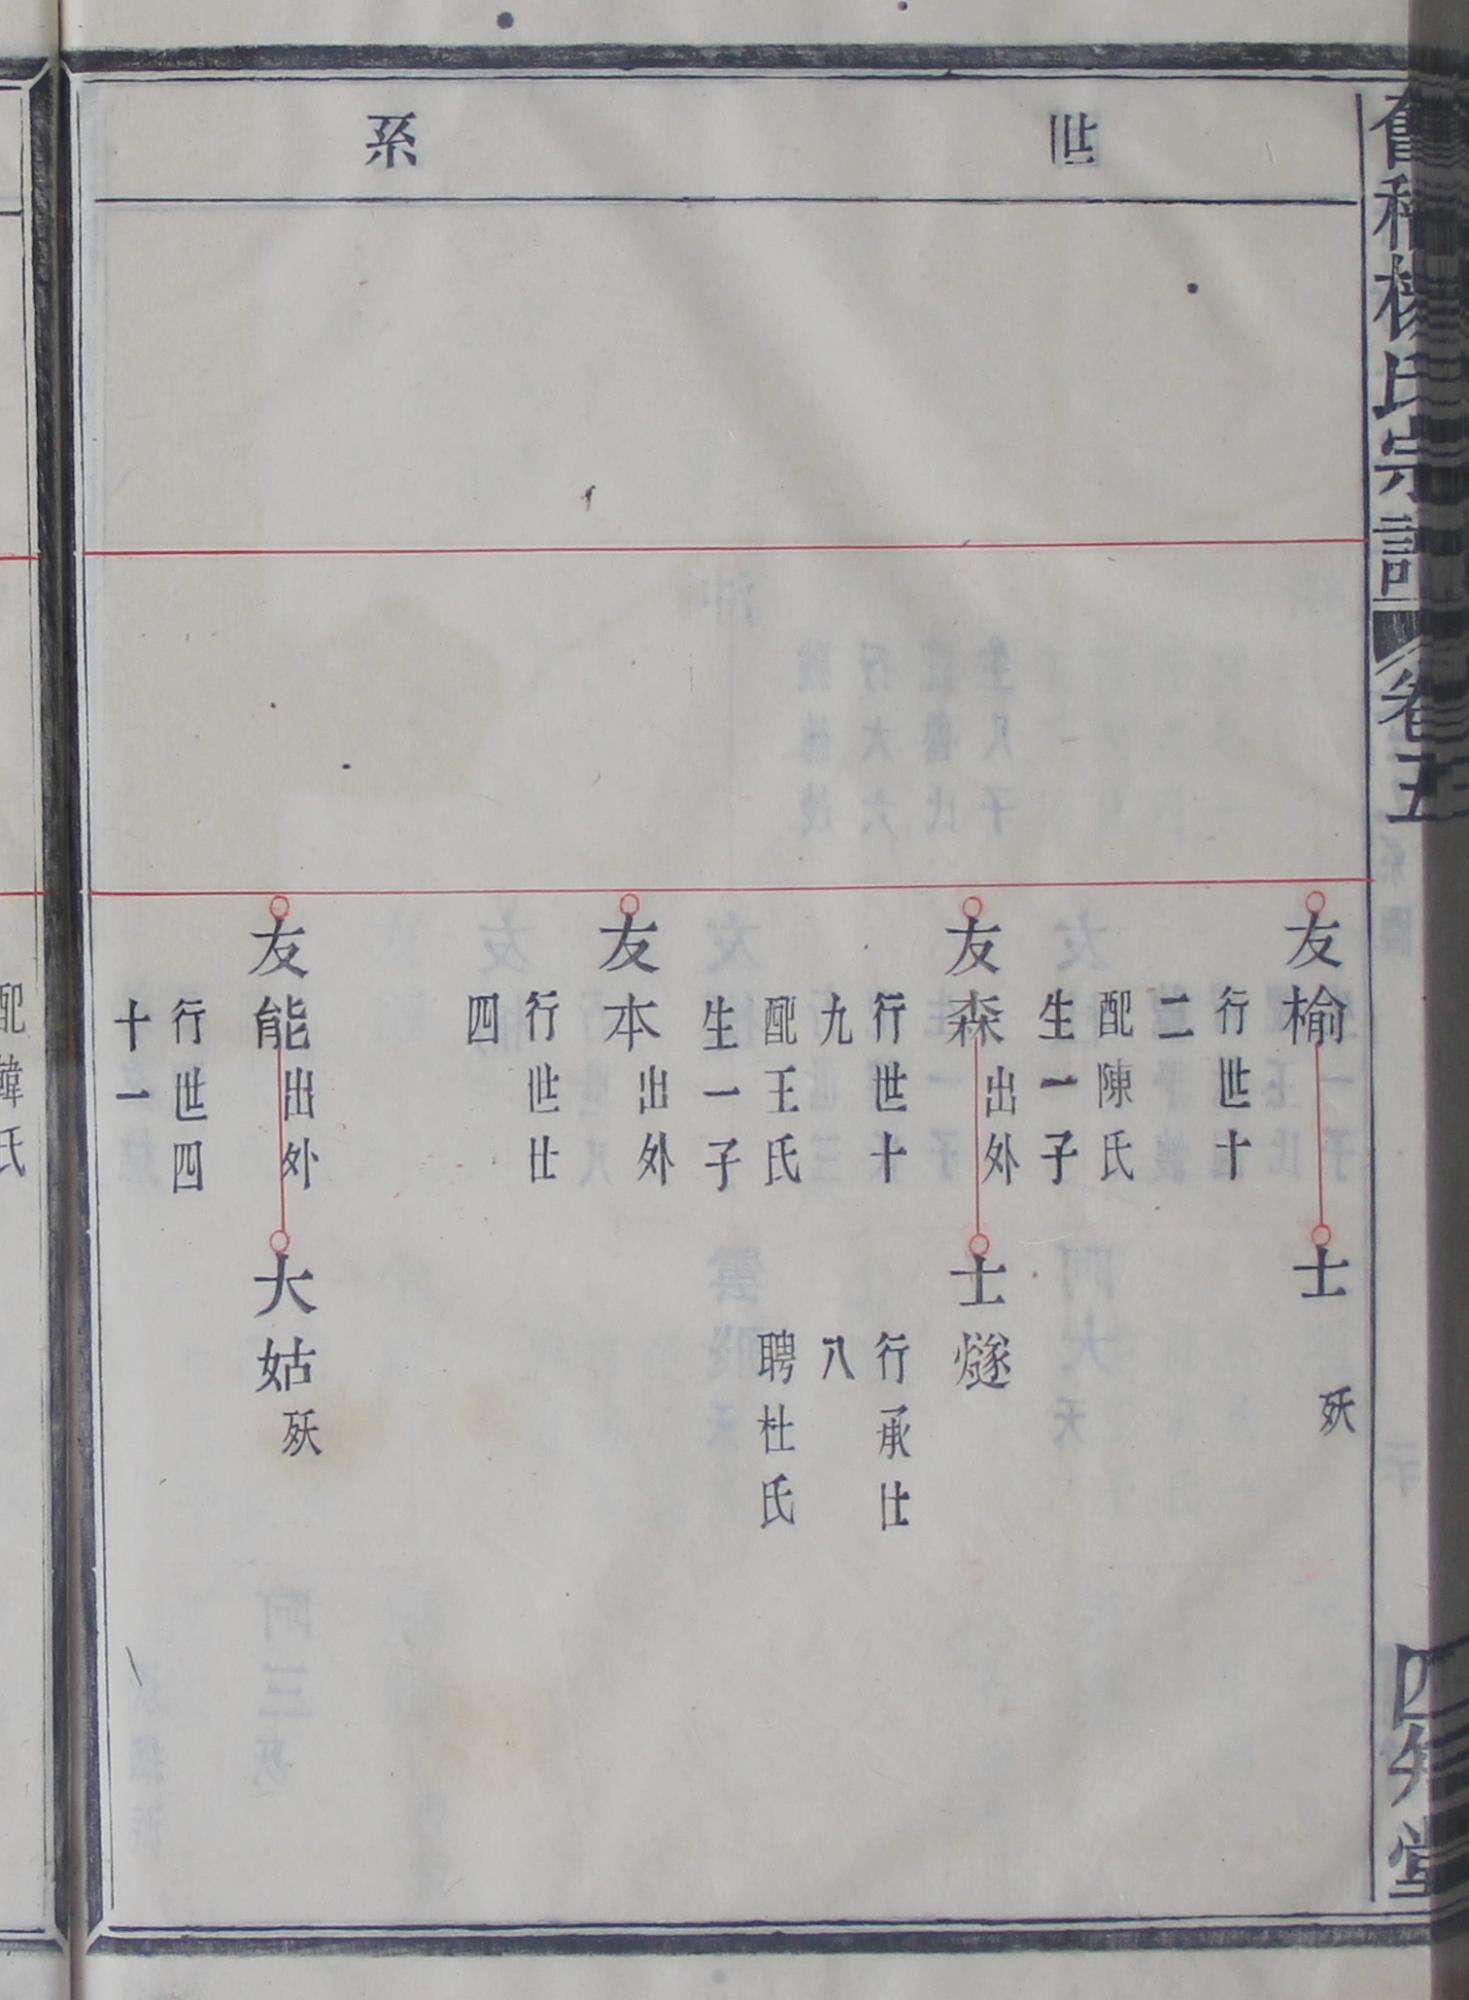 楊氏宗譜
卷五
四知堂
世系
友榆
行世十
二
配陳氏
生一子
士
殀
友森
出外
行世十
九
配王氏
生一子
士燧
行承仕
八
聘杜氏
友本
出外
行世仕
四
友能
出外
行世四
十一
大姑
殀
配韓氏